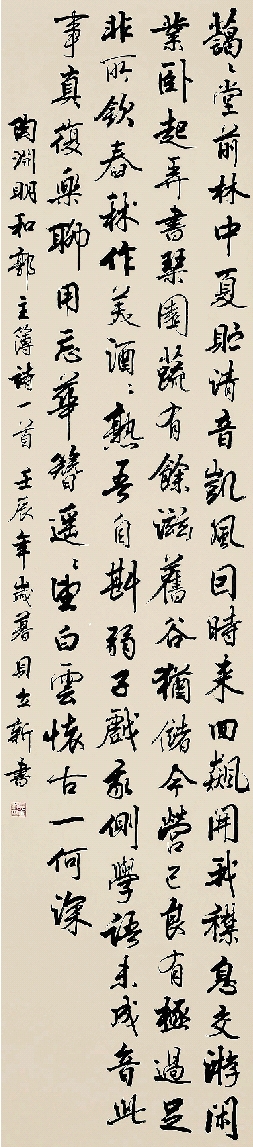 藹々堂前林中夏貯清音凱風因時来回飆開我襟息交游閑
業卧起弄書琴園蔬有餘滋舊谷猶儲今營己良有極過足
非所欽春秫作美酒々熟吾自斟弱子戲我側學語未成音此
事真復樂聊用忘華簪遥々望白雲懷古一何深
陶淵明和郭主簿詩一首 壬辰年歲暮 立新書